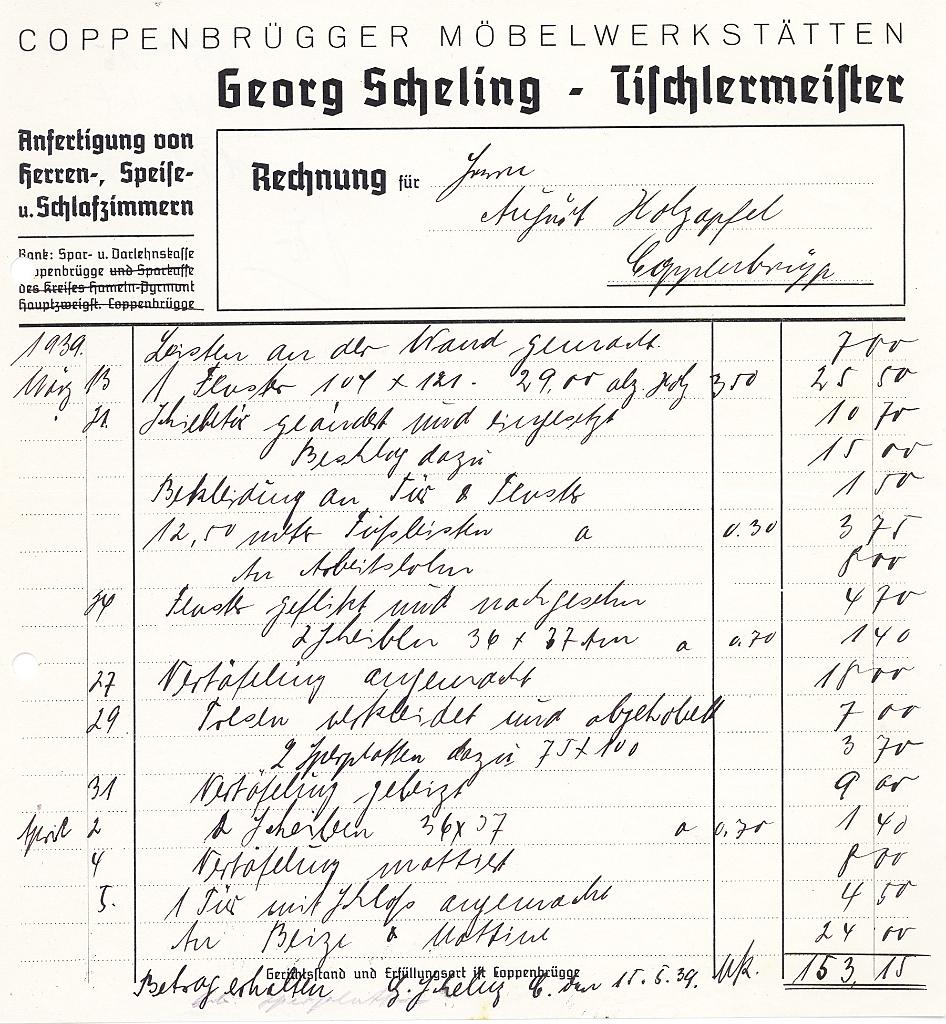 COPPENBRÜGGER MÖBELWERKSTÄTTEN
Georg Scheling - Tischlermeister
Anfertigung von
Herren-, Speise-
u. Schlafzimmern
Bank: Spar- u. Darlehnskasse
Coppenbrügge und Sparkasse
des Kreises Hameln-Pyrmont
Hauptzweigst. Coppenbrügge
Rechnung für Herrn
August Holzapfel
Coppenbrügge
1939. Leisten an der Wand gemacht. 7 00
März 13 1 Fenster 104 x 121. 29,00 abz. Holz 3,50 25 50
21. Schiebetür geändert und eingesetzt 10 70
Beschlag dazu 15 00
Bekleidung an Tür & Fenster 1 50
12,50 meter Fußleisten a 0.30 3 75
An Arbeitslohn 8 00
24 Fenster geflikt und nachgesehn 4 70
2 Scheiben 36 x 37 a 0.70 1 40
27 Vertäfelung angemacht 18 00
29 Tresen verkleidet und abgehobelt 7 00
2 Sperplatten dazu 75 x 100 3 70
31 Vertäfelung gebeizt 9 00
April 2 2 Scheiben 36 x 37 a 0,70 1 40
4 Vertäfelung mattiert 8 00
5. 1 Tür mit Schloß angemacht 4 50
An Beize & Mattine 24 00
Gerichtsstand und Erfüllungsort ist Coppenbrügge
Mk. 153,15
Betrag erhalten G. Scheling C. den 15.5.39.